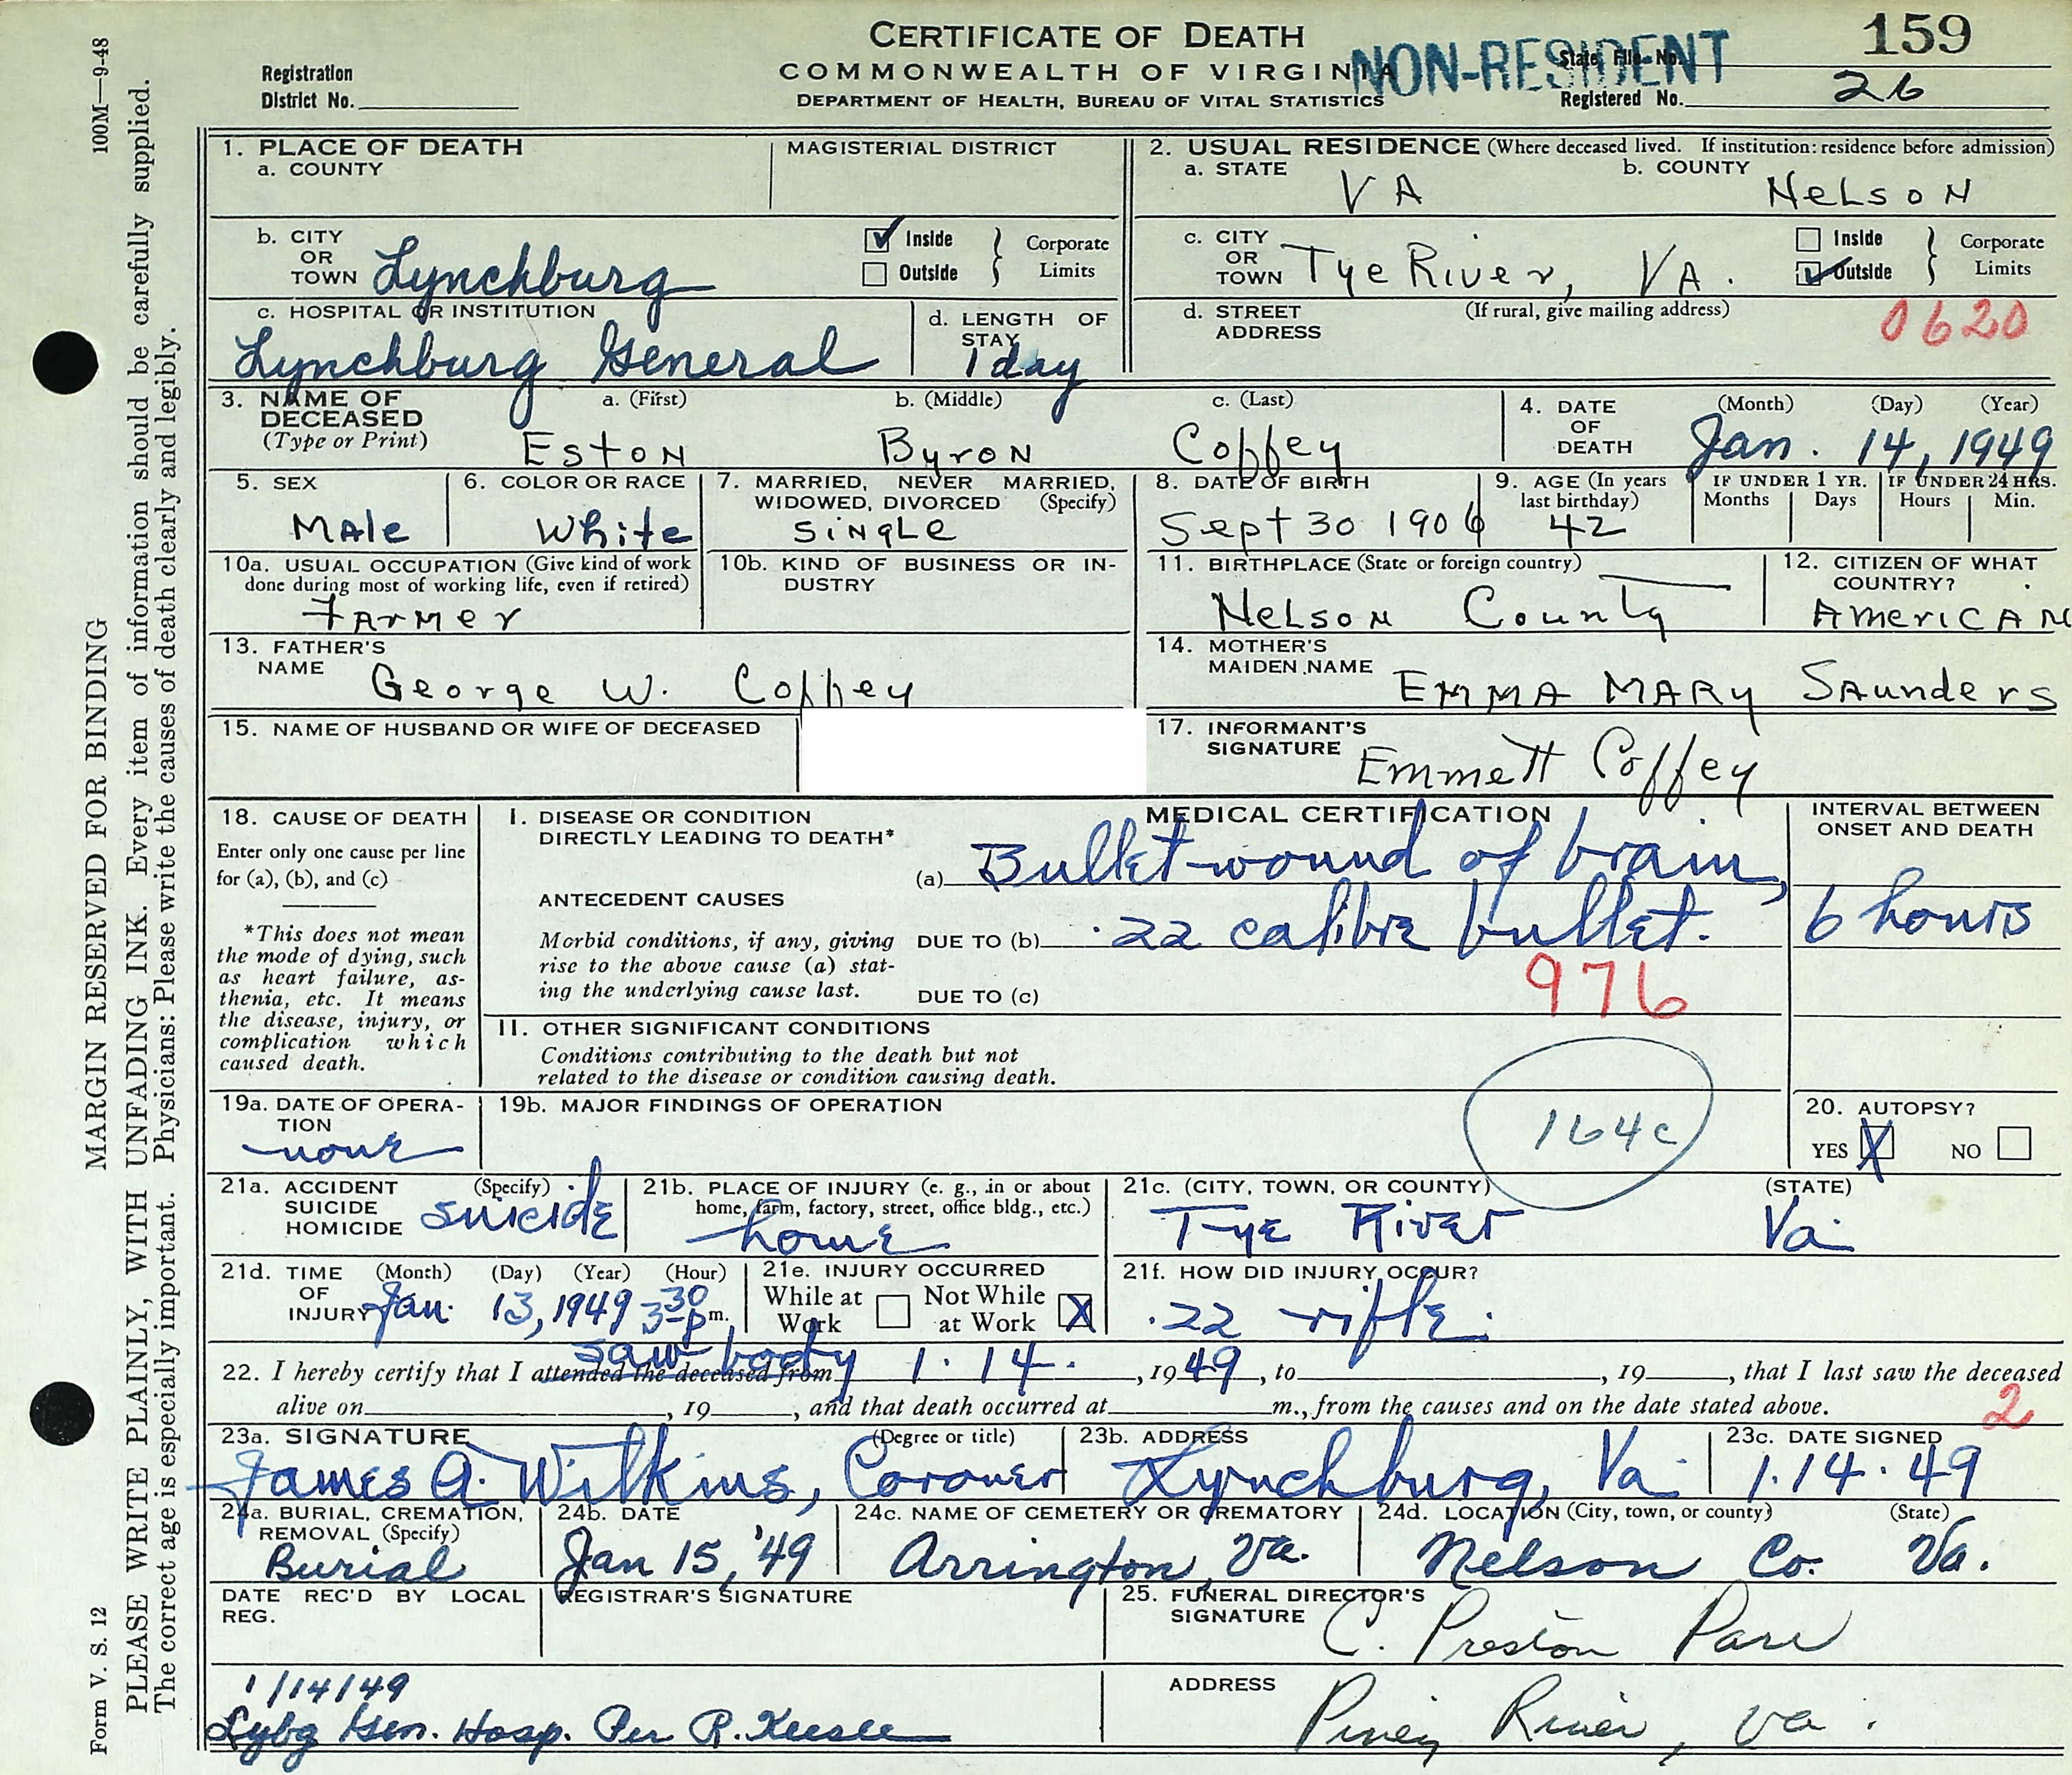 CERTIFICATE OF DEATH
COMMONWEALTH OF VIRGINIA
DEPARTMENT OF HEALTH, BUREAU OF VITAL STATISTICS
NON-RESIDENT
159
Registration
District No.
State File No.
Registered No. 26
100M—9-48
MARGIN RESERVED FOR BINDING
PLEASE WRITE PLAINLY, WITH UNFADING INK. Every item of information should be carefully supplied.
The correct age is especially important. Physicians: Please write the causes of death clearly and legibly.
Form V. S. 12
1. PLACE OF DEATH
a. COUNTY
MAGISTERIAL DISTRICT
2. USUAL RESIDENCE (Where deceased lived. If institution: residence before admission)
a. STATE VA
b. COUNTY Nelson
b. CITY OR TOWN Lynchburg
Inside
Outside
Corporate Limits
c. CITY OR TOWN Tye River, VA.
Inside
Outside
Corporate Limits
c. HOSPITAL OR INSTITUTION
Lynchburg General
d. LENGTH OF STAY
1 day
d. STREET ADDRESS
(If rural, give mailing address)
0620
3. NAME OF DECEASED
(Type or Print)
a. (First) Eston
b. (Middle) Byron
c. (Last) Coffey
4. DATE OF DEATH
(Month) (Day) (Year)
Jan. 14, 1949
5. SEX
Male
6. COLOR OR RACE
White
7. MARRIED, NEVER MARRIED, WIDOWED, DIVORCED (Specify)
Single
8. DATE OF BIRTH
Sept 30 1906
9. AGE (In years last birthday)
42
IF UNDER 1 YR.
Months Days
IF UNDER 24 HRS.
Hours Min.
10a. USUAL OCCUPATION (Give kind of work done during most of working life, even if retired)
Farmer
10b. KIND OF BUSINESS OR INDUSTRY
11. BIRTHPLACE (State or foreign country)
Nelson County
12. CITIZEN OF WHAT COUNTRY?
American
13. FATHER'S NAME
George W. Coffey
14. MOTHER'S MAIDEN NAME
Emma Mary Saunders
15. NAME OF HUSBAND OR WIFE OF DECEASED
17. INFORMANT'S SIGNATURE
Emmett Coffey
18. CAUSE OF DEATH
Enter only one cause per line for (a), (b), and (c)
*This does not mean the mode of dying, such as heart failure, asthenia, etc. It means the disease, injury, or complication which caused death.
MEDICAL CERTIFICATION
INTERVAL BETWEEN ONSET AND DEATH
I. DISEASE OR CONDITION DIRECTLY LEADING TO DEATH*
(a) Bullet wound of brain,
ANTECEDENT CAUSES
Morbid conditions, if any, giving rise to the above cause (a) stating the underlying cause last.
DUE TO (b) .22 calibre bullet.
6 hours
DUE TO (c)
976
II. OTHER SIGNIFICANT CONDITIONS
Conditions contributing to the death but not related to the disease or condition causing death.
19a. DATE OF OPERATION
none
19b. MAJOR FINDINGS OF OPERATION
164c
20. AUTOPSY?
YES X NO
21a. ACCIDENT SUICIDE HOMICIDE (Specify)
suicide
21b. PLACE OF INJURY (e. g., in or about home, farm, factory, street, office bldg., etc.)
home
21c. (CITY, TOWN, OR COUNTY) (STATE)
Tye River Va.
21d. TIME OF INJURY (Month) (Day) (Year) (Hour)
Jan. 13, 1949 3:30 p m.
21e. INJURY OCCURRED
While at Work
Not While at Work X
21f. HOW DID INJURY OCCUR?
.22 rifle.
saw body
22. I hereby certify that I attended the deceased from 1.14. , 1949, to , 19 , that I last saw the deceased
alive on , 19 , and that death occurred at m., from the causes and on the date stated above.
2
23a. SIGNATURE (Degree or title)
James A. Wilkins, Coroner
23b. ADDRESS
Lynchburg, Va.
23c. DATE SIGNED
1.14.49
24a. BURIAL, CREMATION, REMOVAL (Specify)
Burial
24b. DATE
Jan 15, '49
24c. NAME OF CEMETERY OR CREMATORY
Arrington, Va.
24d. LOCATION (City, town, or county) (State)
Nelson Co. Va.
DATE REC'D BY LOCAL REG.
REGISTRAR'S SIGNATURE
25. FUNERAL DIRECTOR'S SIGNATURE
C. Preston Parr
1/14/49
Lybg Gen. Hosp. Per R.
ADDRESS
Piney River, Va.